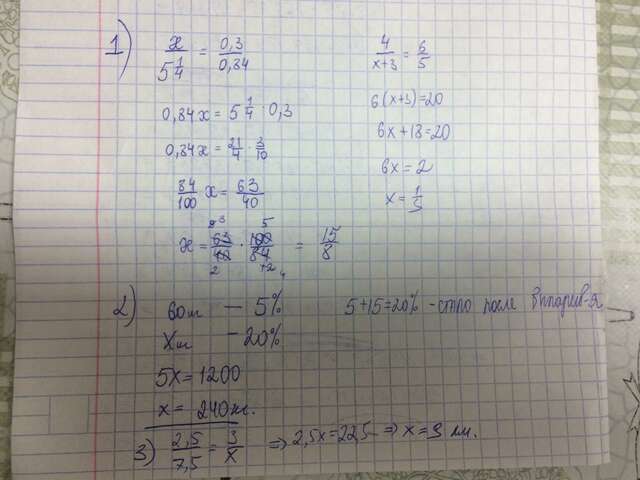 1) x / 5 1/4 = 0,3 / 0,84
0,84x = 5 1/4 · 0,3
0,84x = 21/4 · 3/10
84/100 x = 63/40
x = 63/40 · 100/84 = 15/8
4 / x+3 = 6/5
6(x+3)=20
6x+18=20
6x = 2
x = 1/3
2) 60 – 5%
X – 20%
5+15=20% - стало после
5x = 1200
x = 240
3) 2,5/7,5 = 3/x ⇒ 2,5x=22,5 ⇒ x=9